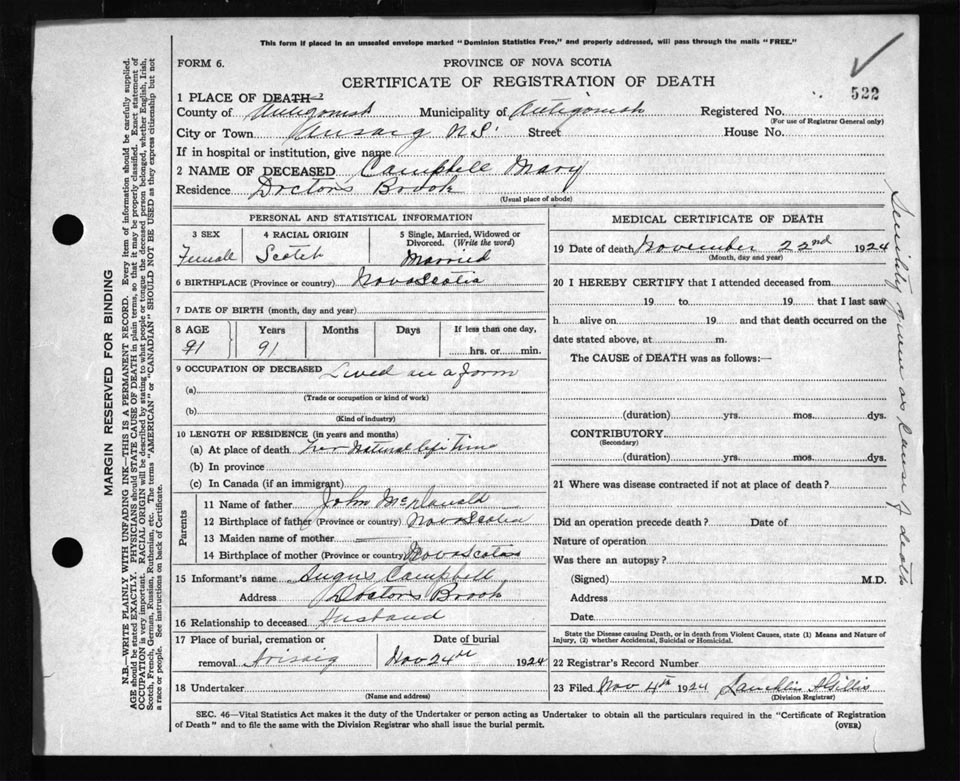 This form if placed in an unsealed envelope marked "Dominion Statistics Free," and properly addressed, will pass through the mails "FREE."
FORM 6.
PROVINCE OF NOVA SCOTIA
CERTIFICATE OF REGISTRATION OF DEATH
522
1 PLACE OF DEATH—
County of Antigonish Municipality of Antigonish Registered No.
(For use of Registrar General only)
City or Town Arisaig N.S. Street House No.
If in hospital or institution, give name
2 NAME OF DECEASED Campbell Mary
Residence Doctors Brook
(Usual place of abode)
PERSONAL AND STATISTICAL INFORMATION
3 SEX Female
4 RACIAL ORIGIN Scotch
5 Single, Married, Widowed or Divorced. (Write the word) Married
6 BIRTHPLACE (Province or country) Nova Scotia
7 DATE OF BIRTH (month, day and year)
8 AGE Years Months Days If less than one day,
91 91 hrs. or min.
9 OCCUPATION OF DECEASED Lived on a farm
(a)
(Trade or occupation or kind of work)
(b)
(Kind of industry)
10 LENGTH OF RESIDENCE (in years and months)
(a) At place of death her Natural life time
(b) In province
(c) In Canada (if an immigrant)
Parents
11 Name of father John McDonald
12 Birthplace of father (Province or country) Nova Scotia
13 Maiden name of mother —
14 Birthplace of mother (Province or country) Nova Scotia
15 Informant's name Angus Campbell
Address Doctors Brook
16 Relationship to deceased Husband
17 Place of burial, cremation or removal Arisaig
Date of burial Nov 24th 1924
18 Undertaker
(Name and address)
MEDICAL CERTIFICATE OF DEATH
19 Date of death November 22nd 1924
(Month, day and year)
20 I HEREBY CERTIFY that I attended deceased from
19 to 19 that I last saw
h alive on 19 and that death occurred on the
date stated above, at m.
The CAUSE of DEATH was as follows:—
(duration) yrs. mos. dys.
CONTRIBUTORY
(Secondary)
(duration) yrs. mos. dys.
21 Where was disease contracted if not at place of death?
Did an operation precede death? Date of
Nature of operation
Was there an autopsy?
(Signed) M.D.
Address
Date
State the Disease causing Death, or in death from Violent Causes, state (1) Means and Nature of
Injury, (2) whether Accidental, Suicidal or Homicidal.
22 Registrar's Record Number
23 Filed Nov 4th 1924 Lauchlin Gillis
(Division Registrar)
Senility given as Cause of death
SEC. 46—Vital Statistics Act makes it the duty of the Undertaker or person acting as Undertaker to obtain all the particulars required in the "Certificate of Registration
of Death" and to file the same with the Division Registrar who shall issue the burial permit. (OVER)
MARGIN RESERVED FOR BINDING
N.B.—WRITE PLAINLY WITH UNFADING INK—THIS IS A PERMANENT RECORD. Every item of information should be carefully supplied.
AGE should be stated EXACTLY. PHYSICIANS should STATE CAUSE OF DEATH in plain terms, so that it may be properly classified. Exact statement of
OCCUPATION is very important. RACIAL ORIGIN will be described by stating to what people or tongue the deceased person belonged, whether English, Irish,
Scotch, French, German, Russian, Ruthenian, etc. The terms "AMERICAN" or "CANADIAN" SHOULD NOT BE USED as they express citizenship but not
a race or people. See instructions on back of Certificate.